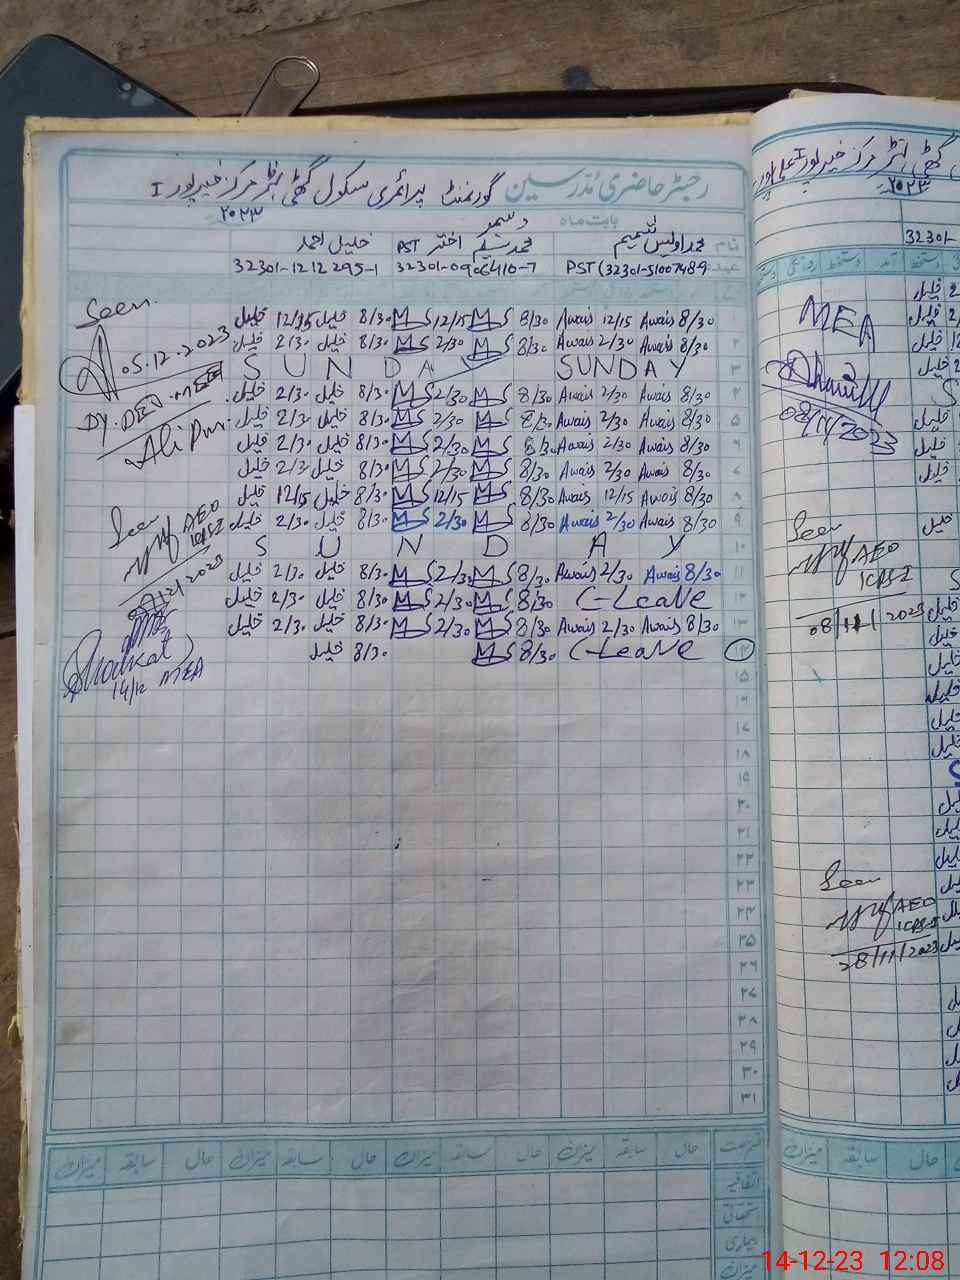 رجسٹر حاضری مدرسین گورنمنٹ پرائمری سکول گھٹی مرکز خیرپور I
بابت ماہ دسمبر ۲۰۲۳
نام محمد اویس محمد سلیم اختر PST خلیل احمد
عہدہ PST (32301-5100748 32301-0906410-7 32301-1212295-1
۱ Awais 8/30 Awais 12/15 MS 8/30 MS 12/15 خلیل 8/30 خلیل 12/15
۲ Awais 8/30 Awais 2/30 MS 8/30 MS 2/30 خلیل 8/30 خلیل 2/30
۳ SUNDAY SUNDAY
۴ Awais 8/30 Awais 2/30 MS 8/30 MS 2/30 خلیل 8/30 خلیل 2/30
۵ Awais 8/30 Awais 2/30 MS 8/30 MS 2/30 خلیل 8/30 خلیل 2/30
۶ Awais 8/30 Awais 2/30 MS 8/30 MS 2/30 خلیل 8/30 خلیل 2/30
۷ Awais 8/30 Awais 2/30 MS 8/30 MS 2/30 خلیل 8/30 خلیل 2/3
۸ Awais 8/30 Awais 12/15 MS 8/30 MS 12/15 خلیل 8/30 خلیل 12/15
۹ Awais 8/30 Awais 2/30 MS 8/30 MS 2/30 خلیل 8/30 خلیل 2/30
۱۰ SUNDAY
۱۱ Awais 8/30 Awais 2/30 MS 8/30 MS 2/30 خلیل 8/30 خلیل 2/30
۱۲ C-Leave MS 8/30 MS 2/30 خلیل 8/30 خلیل 2/30
۱۳ Awais 8/30 Awais 2/30 MS 8/30 MS 2/30 خلیل 8/30 خلیل 2/30
۱۴ C-Leave MS 8/30 خلیل 8/30
۱۵
۱۶
۱۷
۱۸
۱۹
۲۰
۲۱
۲۲
۲۳
۲۴
۲۵
۲۶
۲۷
۲۸
۲۹
۳۰
۳۱
Seen
05.12.2023
DY. DEO. MEE
Ali Pur.
Seen
AEO
2023
Shadkat
14/12 MEA
حال سابقہ میزان حال سابقہ میزان حال سابقہ میزان
اتفاقیہ
استحقاقی
بیماری
میزان
مرکز خیرپور I علی پور
۲۰۲۳
32301-
آمد دستخط روانگی
MEA
08/11/2023
Seen
AEO
08/11/2023
Seen
AEO
28/11/2023
حال سابقہ میزان
14-12-23 12:08